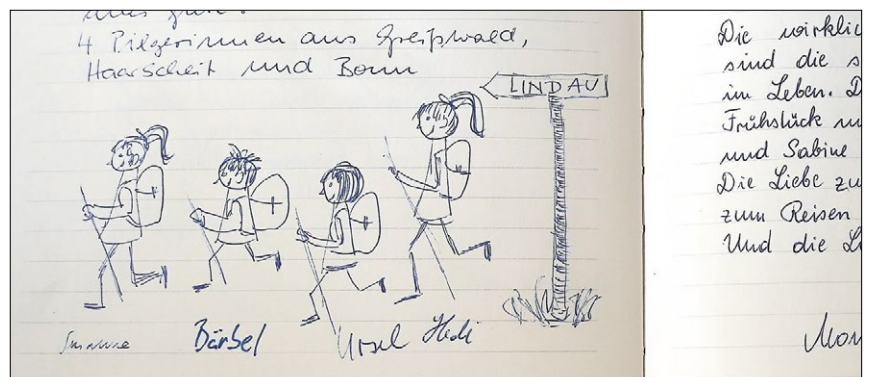 4 Pilgerinnen aus Greifswald,
Haarscheit und Bonn
LINDAU
Susanne Bärbel Ursel Heidi
Die wirklic
sind die s
im Leben. D
Frühstück
und Sabine
Die Liebe zu
zum Reisen
Und die L
Mon